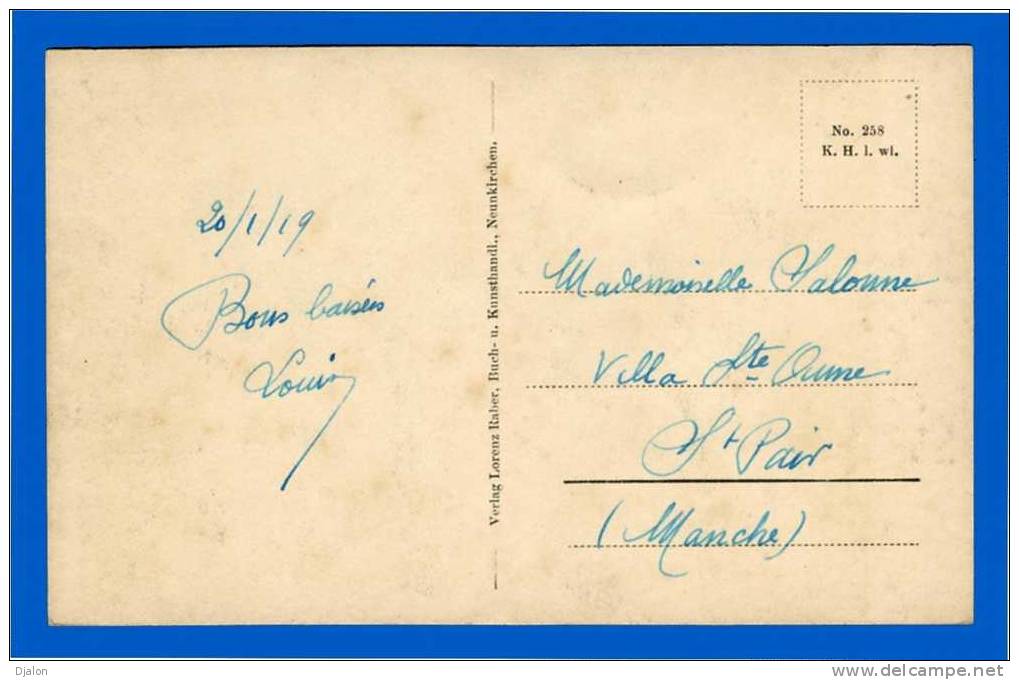 20/1/19
Bons baisers
Louis
Verlag Lorenz Raber, Buch- u. Kunsthandl., Neunkirchen.
No. 258
K. H. l. wl.
Mademoiselle
Villa Ste
St Pair
(Manche)
Djalon
www.delcampe.net